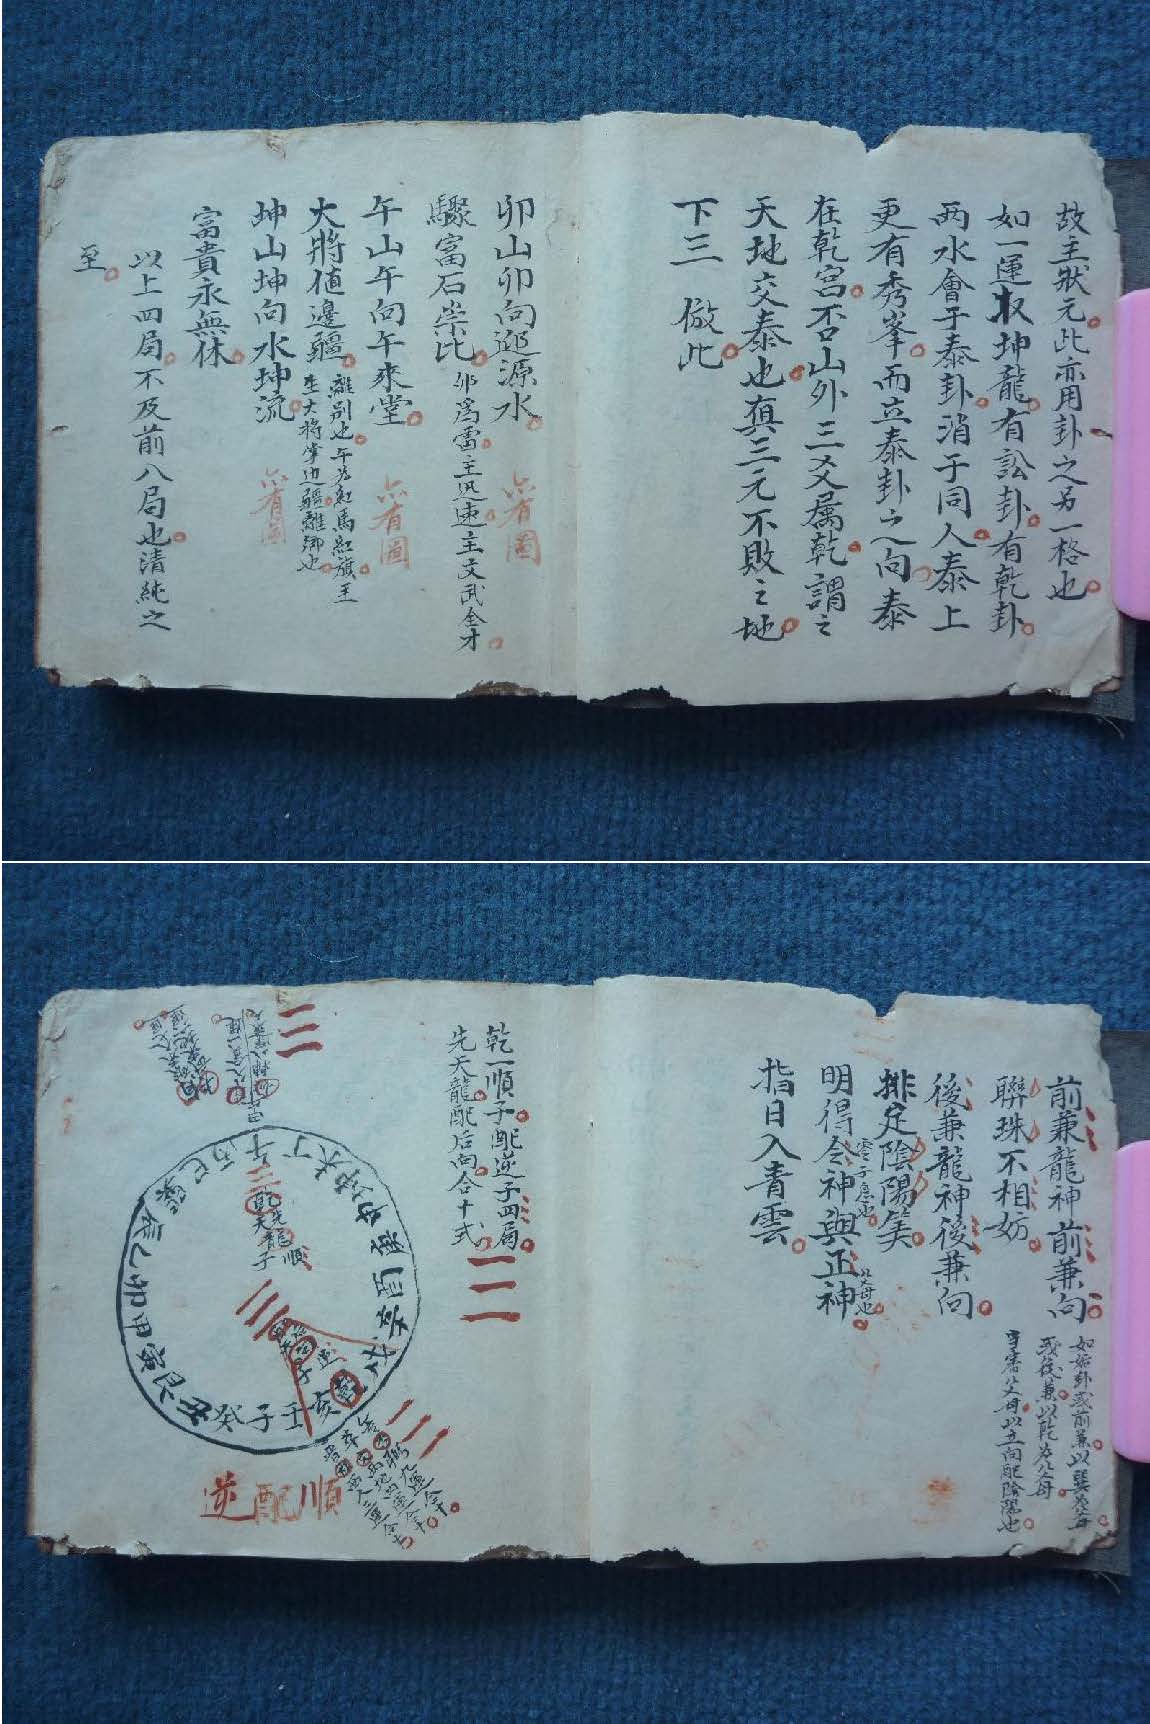 故主狀元此亦用卦之另一格也
如一運取坤龍有訟卦有乾卦
两水會于泰卦消于同人泰上
更有秀峯而立泰卦之向泰
在乾宮否山外三爻属乾謂之
天地交泰也真三元不敗之地
下三 倣此
卯山卯向迎源水
驟富石崇比 卯為雷主迅速主文武全才
午山午向午來堂
大將值邊疆
離别也午為紅馬紅旗主
生大將掌边疆離鄉也
坤山坤向水坤流
富貴永無休
以上四局不及前八局也清純之
至
有圖
有圖
有圖
前兼龍神前兼向
聯珠不相妨
後兼龍神後兼向
排定陰陽筭
明得令神與正神
指日入青雲
如姤卦或前兼以巽為父母
或後兼以乾為父母
以立向配陰陽也
乾一順子配逆子四局
先天龍配后向合十式
午丁未坤申庚酉辛戌乾亥壬子癸丑艮寅甲卯乙辰巽巳丙
順配逆